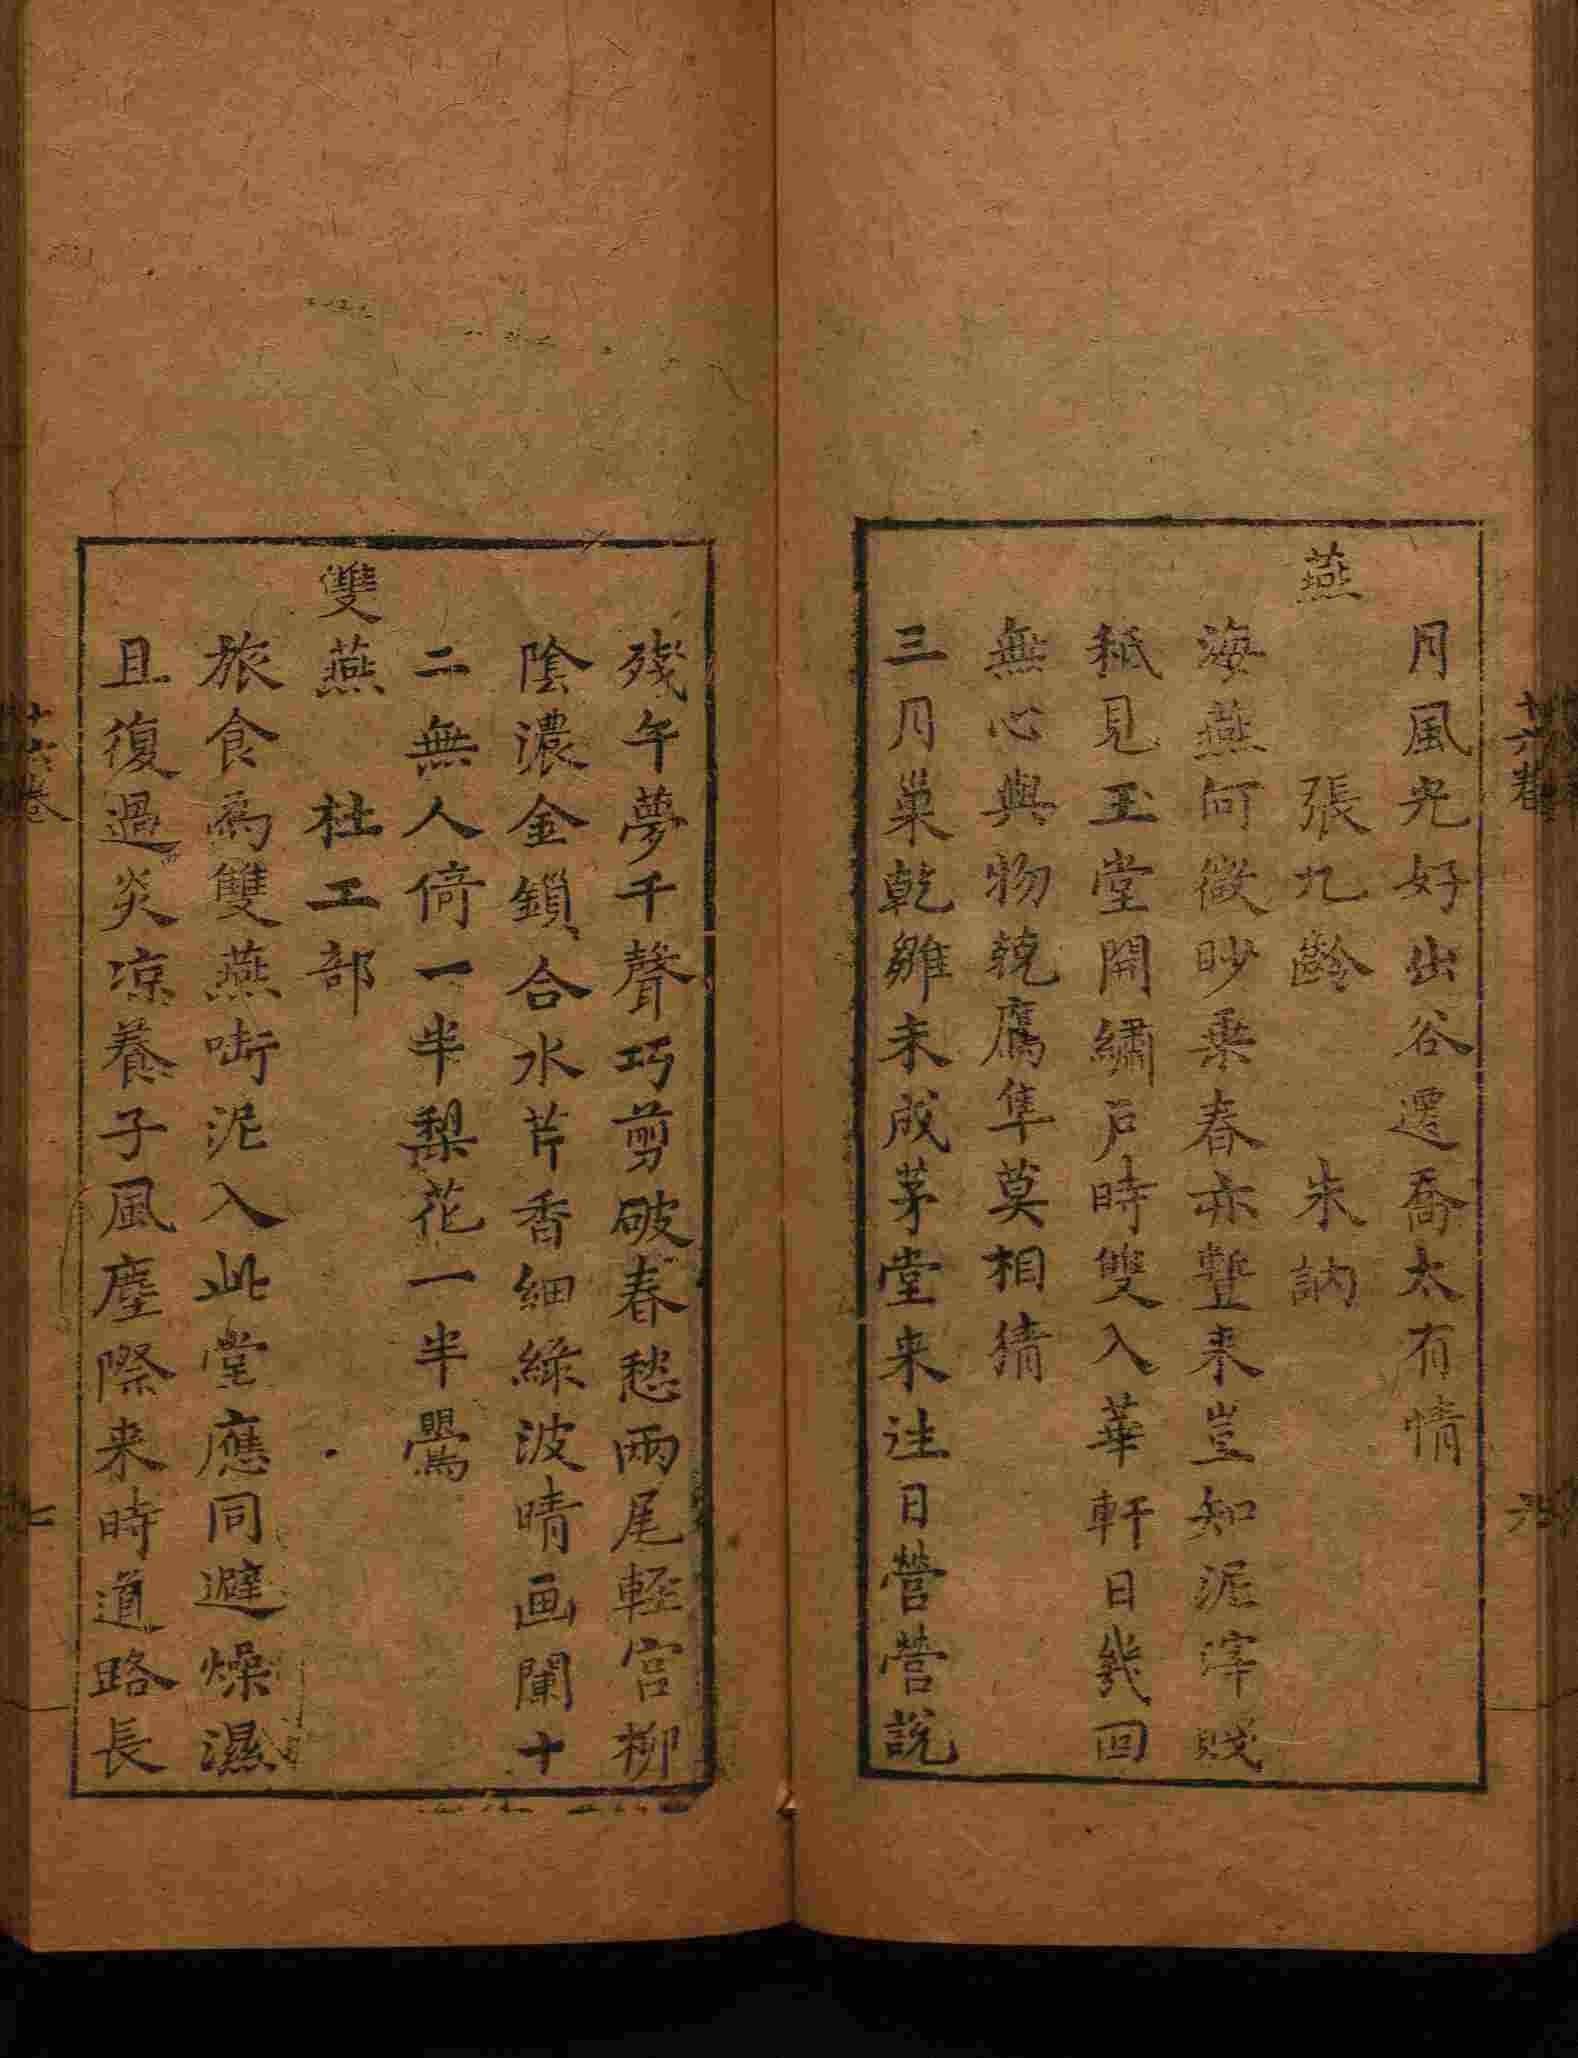 月風光好出谷遷喬太有情
燕
張九齡 朱訥
海燕何微眇乘春亦蹔来豈知泥滓賤
秪見玉堂開繡戶時雙入華軒日幾回
無心與物競鷹隼莫相猜
三月巢乾雛未成茅堂来往日營營說
殘午夢千聲巧剪破春愁兩尾軽宮柳
陰濃金鎖合水芹香細綠波晴画闌十
二無人倚一半梨花一半鶯
雙燕 杜工部
旅食為雙燕啣泥入此堂應同避燥濕
且復過炎凉養子風塵際来時道路長
十六卷
六
十六卷